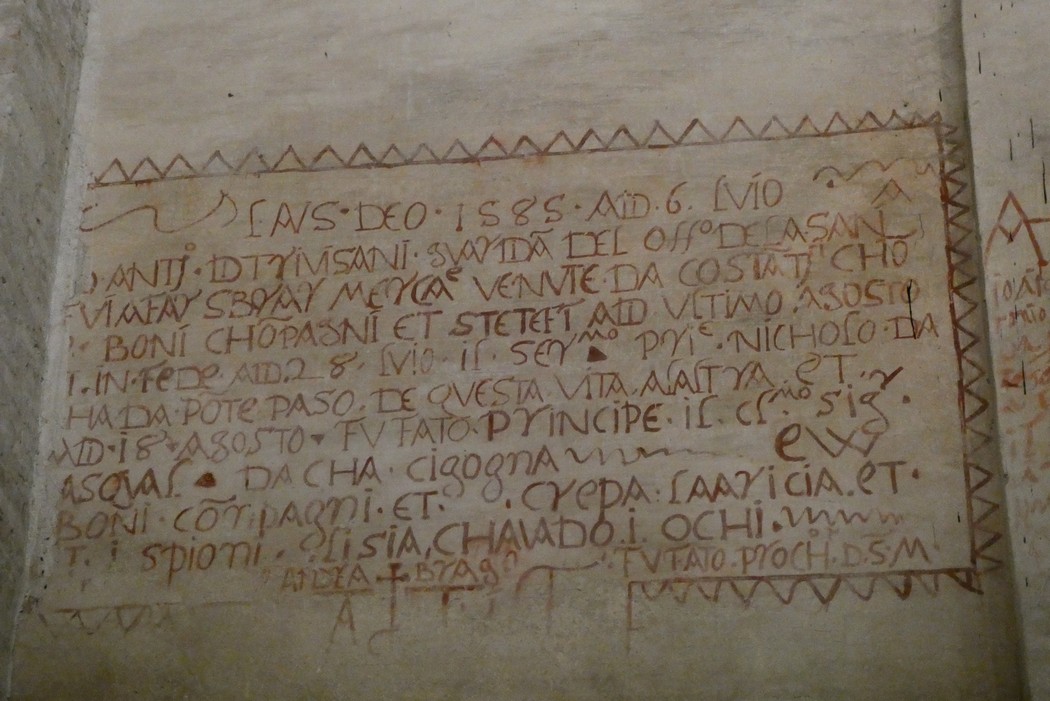 LAVS·DEO·1585·AID·6·LVIO
ANTJ·IDTRIVISANI·SVARDA DEL OFFº DE LA SANI
FV IAFAR SBRAR MERCAᵉ VENVTE·DA COSTATJ CHO
BONI CHOPAGNI ET STETEFT AID VLTIMO AGOSTO
IN·FEDE AID·28·LVIO·IL·SERᵐᵒ PRIᵉ·NICHOLO·DA
HA DA·POTE PASO·DE QVESTA VITA·ALALTRA ET·
AID·18·AGOSTO·FV FATO·PRINCIPE·IL·CLᵐᵒ SIGʳ·
ASQVAL·DA CHA·CIGOGNA EW
BONI·COMPAGNI·ET·CREPA·LAARICIA·ET·
T·I SPIONI·GLISIA,CHAVADO·I·OCHI·
ANDREA BRAGº FV FATO·PROCH·D·S·M·